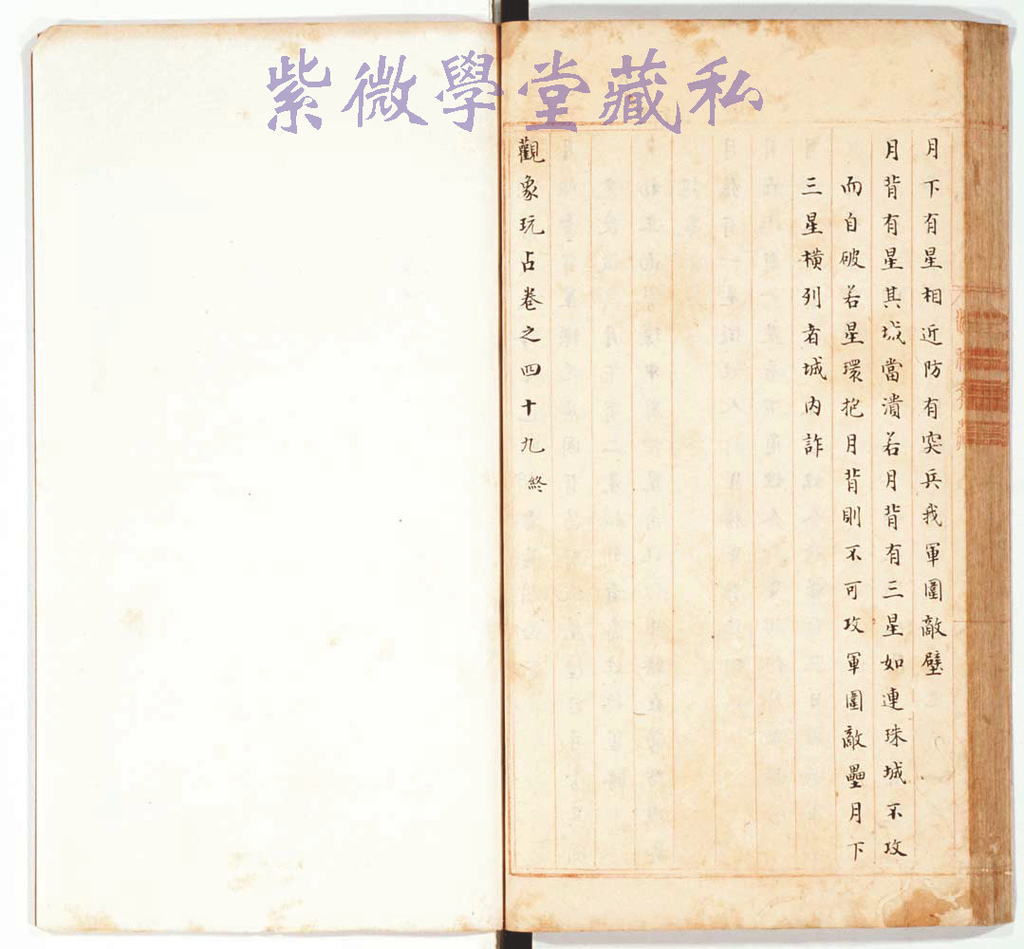 紫微學堂藏私
月下有星相近防有突兵我軍圍敵壁
月背有星其城當潰若月背有三星如連珠城不攻
而自破若星環抱月背則不可攻軍圍敵壘月下
三星橫列者城内詐
觀象玩占卷之四十九終